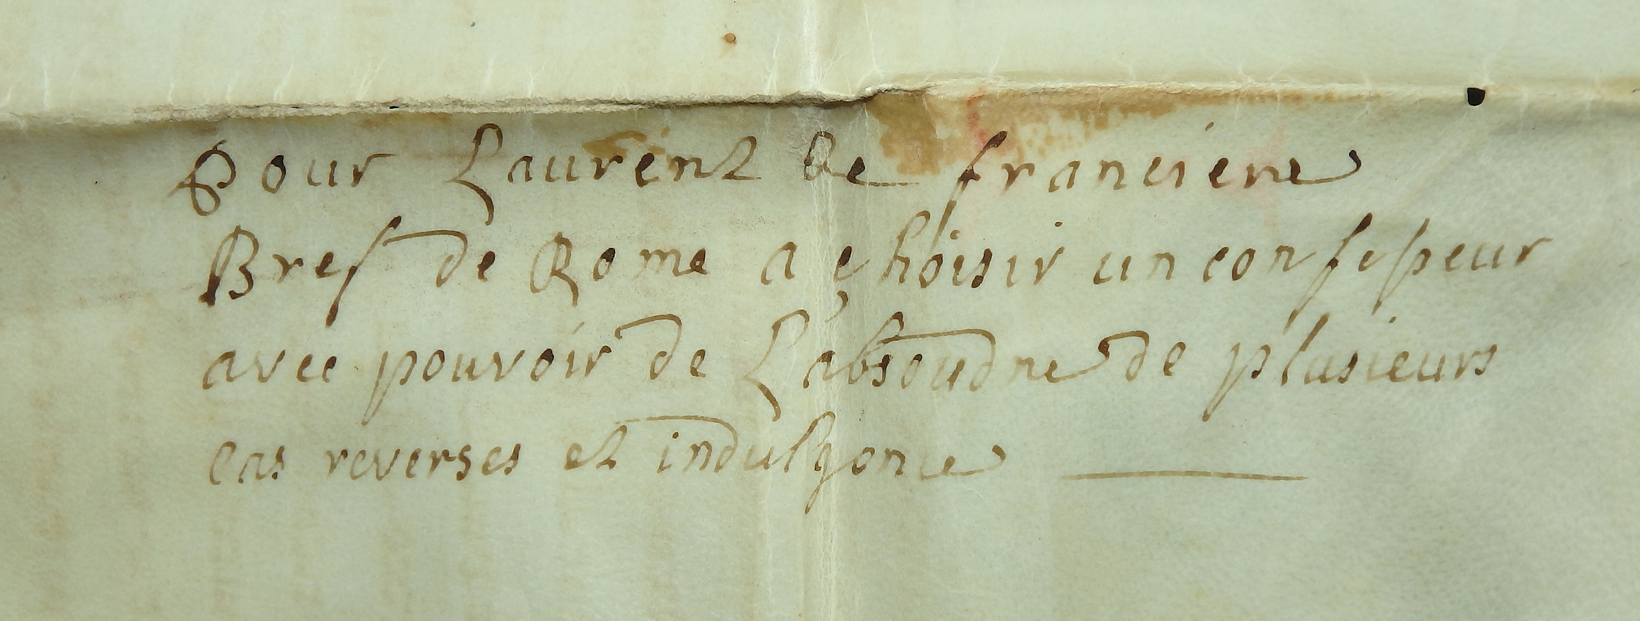 Pour Laurent de franciere
Bref de Rome a choisir un confesseur
avec pouvoir de Labsoudre de plusieurs
cas reverses et indulgence